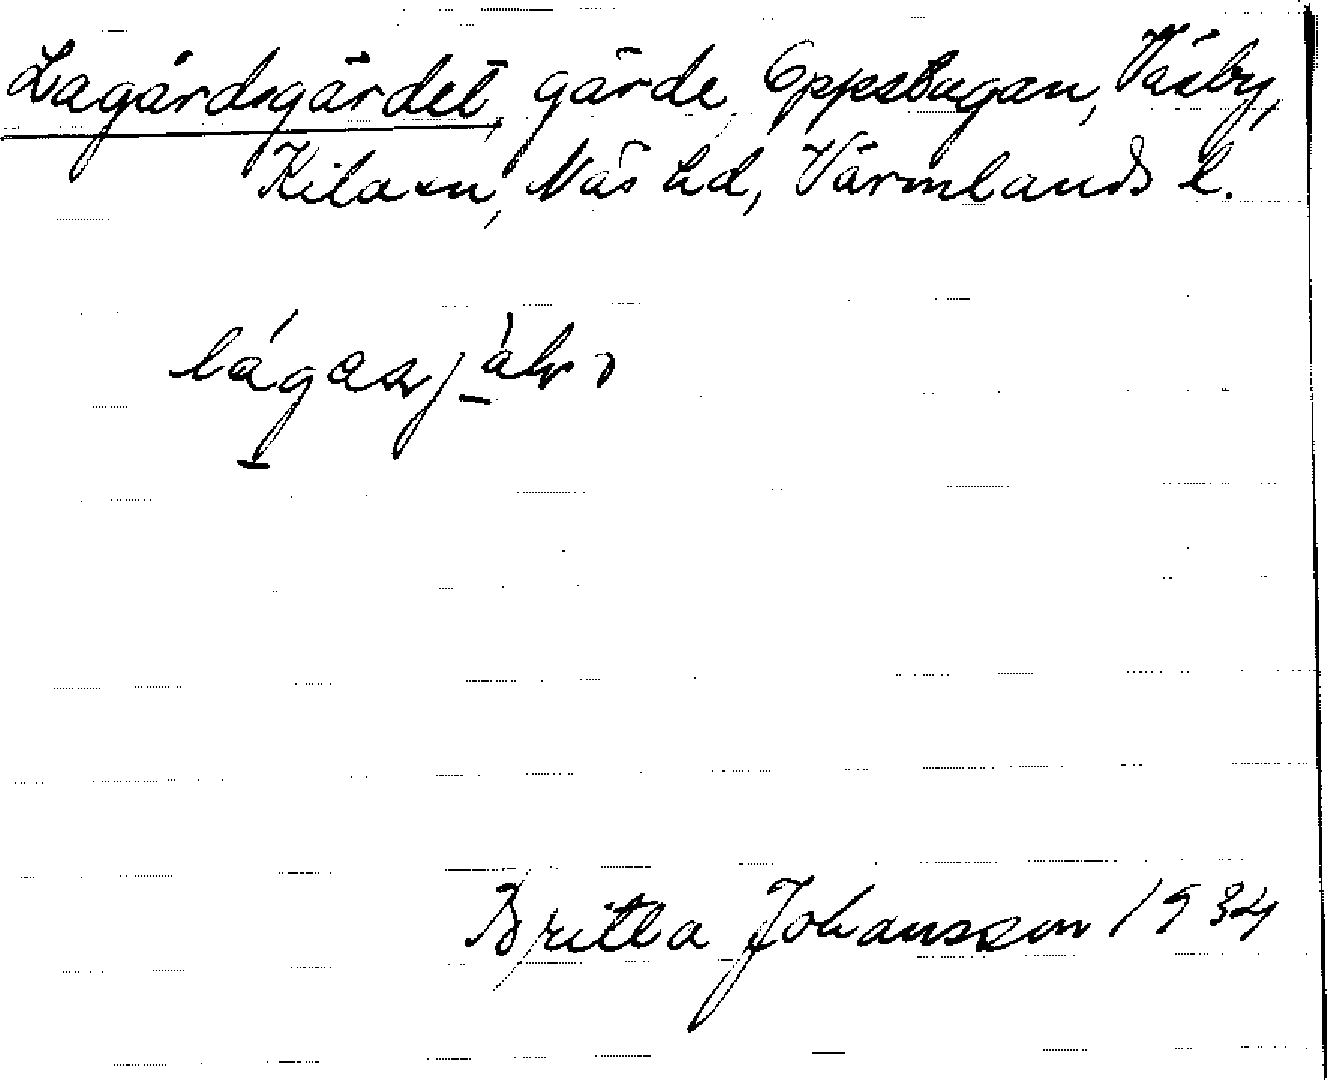 Lagårdsgärdet, gärde, Oppstugan, Väsby,
Kila sn, Näs hd, Värmlands l.
Britta Johansson 1934